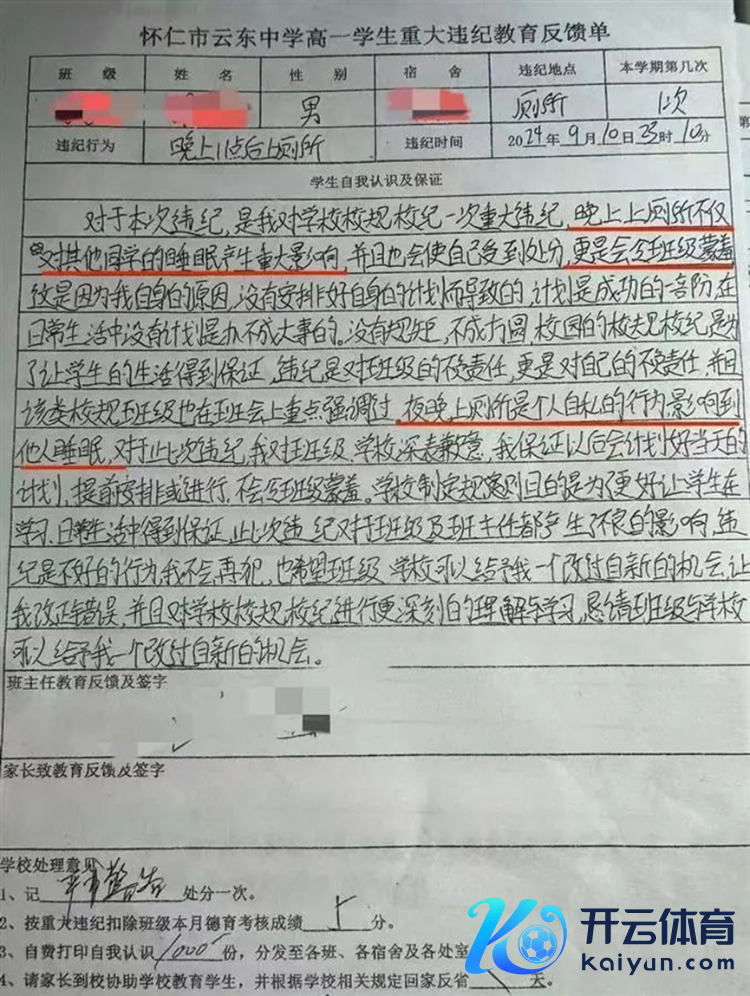 怀仁市云东中学高一学生重大违纪教育反馈单
班 级 姓 名 性 别 宿 舍 违纪地点 本学期第几次
男 厕所 1次
违纪行为 晚上11点后上厕所 违纪时间 2024年9月10日23时10分
学生自我认识及保证
对于本次违纪,是我对学校校规校纪一次重大违纪,晚上上厕所不仅
对其他同学的睡眠产生重大影响,并且也会使自己受到处分,更是会令班级蒙羞
这是因为我自身的原因,没有安排好自身的计划而导致的,计划是成功的一部分,在
日常生活中没有计划是办不成大事的。没有规矩,不成方圆,校园的校规校纪是为
了让学生的生活得到保证,违纪是对班级的不负责任,更是对自己的不负责任,并且
该类校规班级也在班会上重点强调过,夜晚上厕所是个人自私的行为,影响到
他人睡眠,对于此次违纪,我对班级 学校深表歉意,我保证以后会计划好当天的
计划,提前安排或进行,不会令班级蒙羞。学校制定规则目的是为了更好让学生在
学习、日常生活中得到保证,此次违纪对于班级及班主任都产生了不良的影响,违
纪是不好的行为我不会再犯,也希望班级 学校可以给予我一个改过自新的机会,让
我改正错误,并且对学校校规、校纪进行更深刻的理解与学习,恳请班级与学校
可以给予我一个改过自新的机会。
班主任教育反馈及签字
家长致教育反馈及签字
学校处理意见
1、记 严重警告 处分一次。
2、按重大违纪扣除班级本月德育考核成绩 5 分。
3、自费打印自我认识 1000 份,分发至各班、各宿舍及各处室
4、请家长到校协助学校教育学生,并根据学校相关规定回家反省 天。
开云体育
kaiyun.com
第